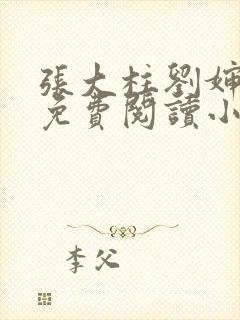 張大柱劉嬸
免費閱讀小
李父